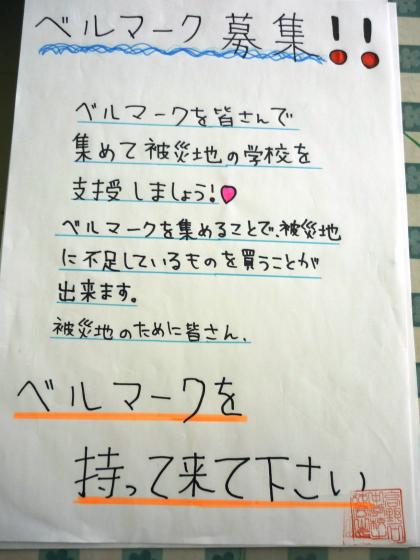 ベルマーク募集!!
ベルマークを皆さんで
集めて被災地の学校を
支授しましょう!
ベルマークを集めることで、被災地
に不足しているものを買うことが
出来ます。
被災地のために皆さん、
ベルマークを
持って来て下さい